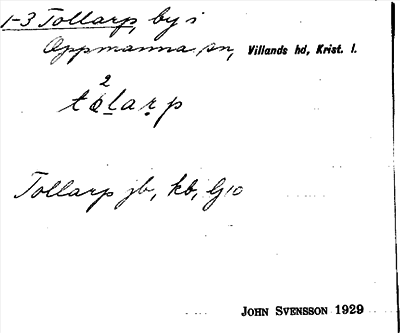 1-3 Tollarp, by i
Oppmanna sn, Villands hd, Krist. l.
2
tɷlarp
Tollarp jb, kb, Gjo
JOHN SVENSSON 1929